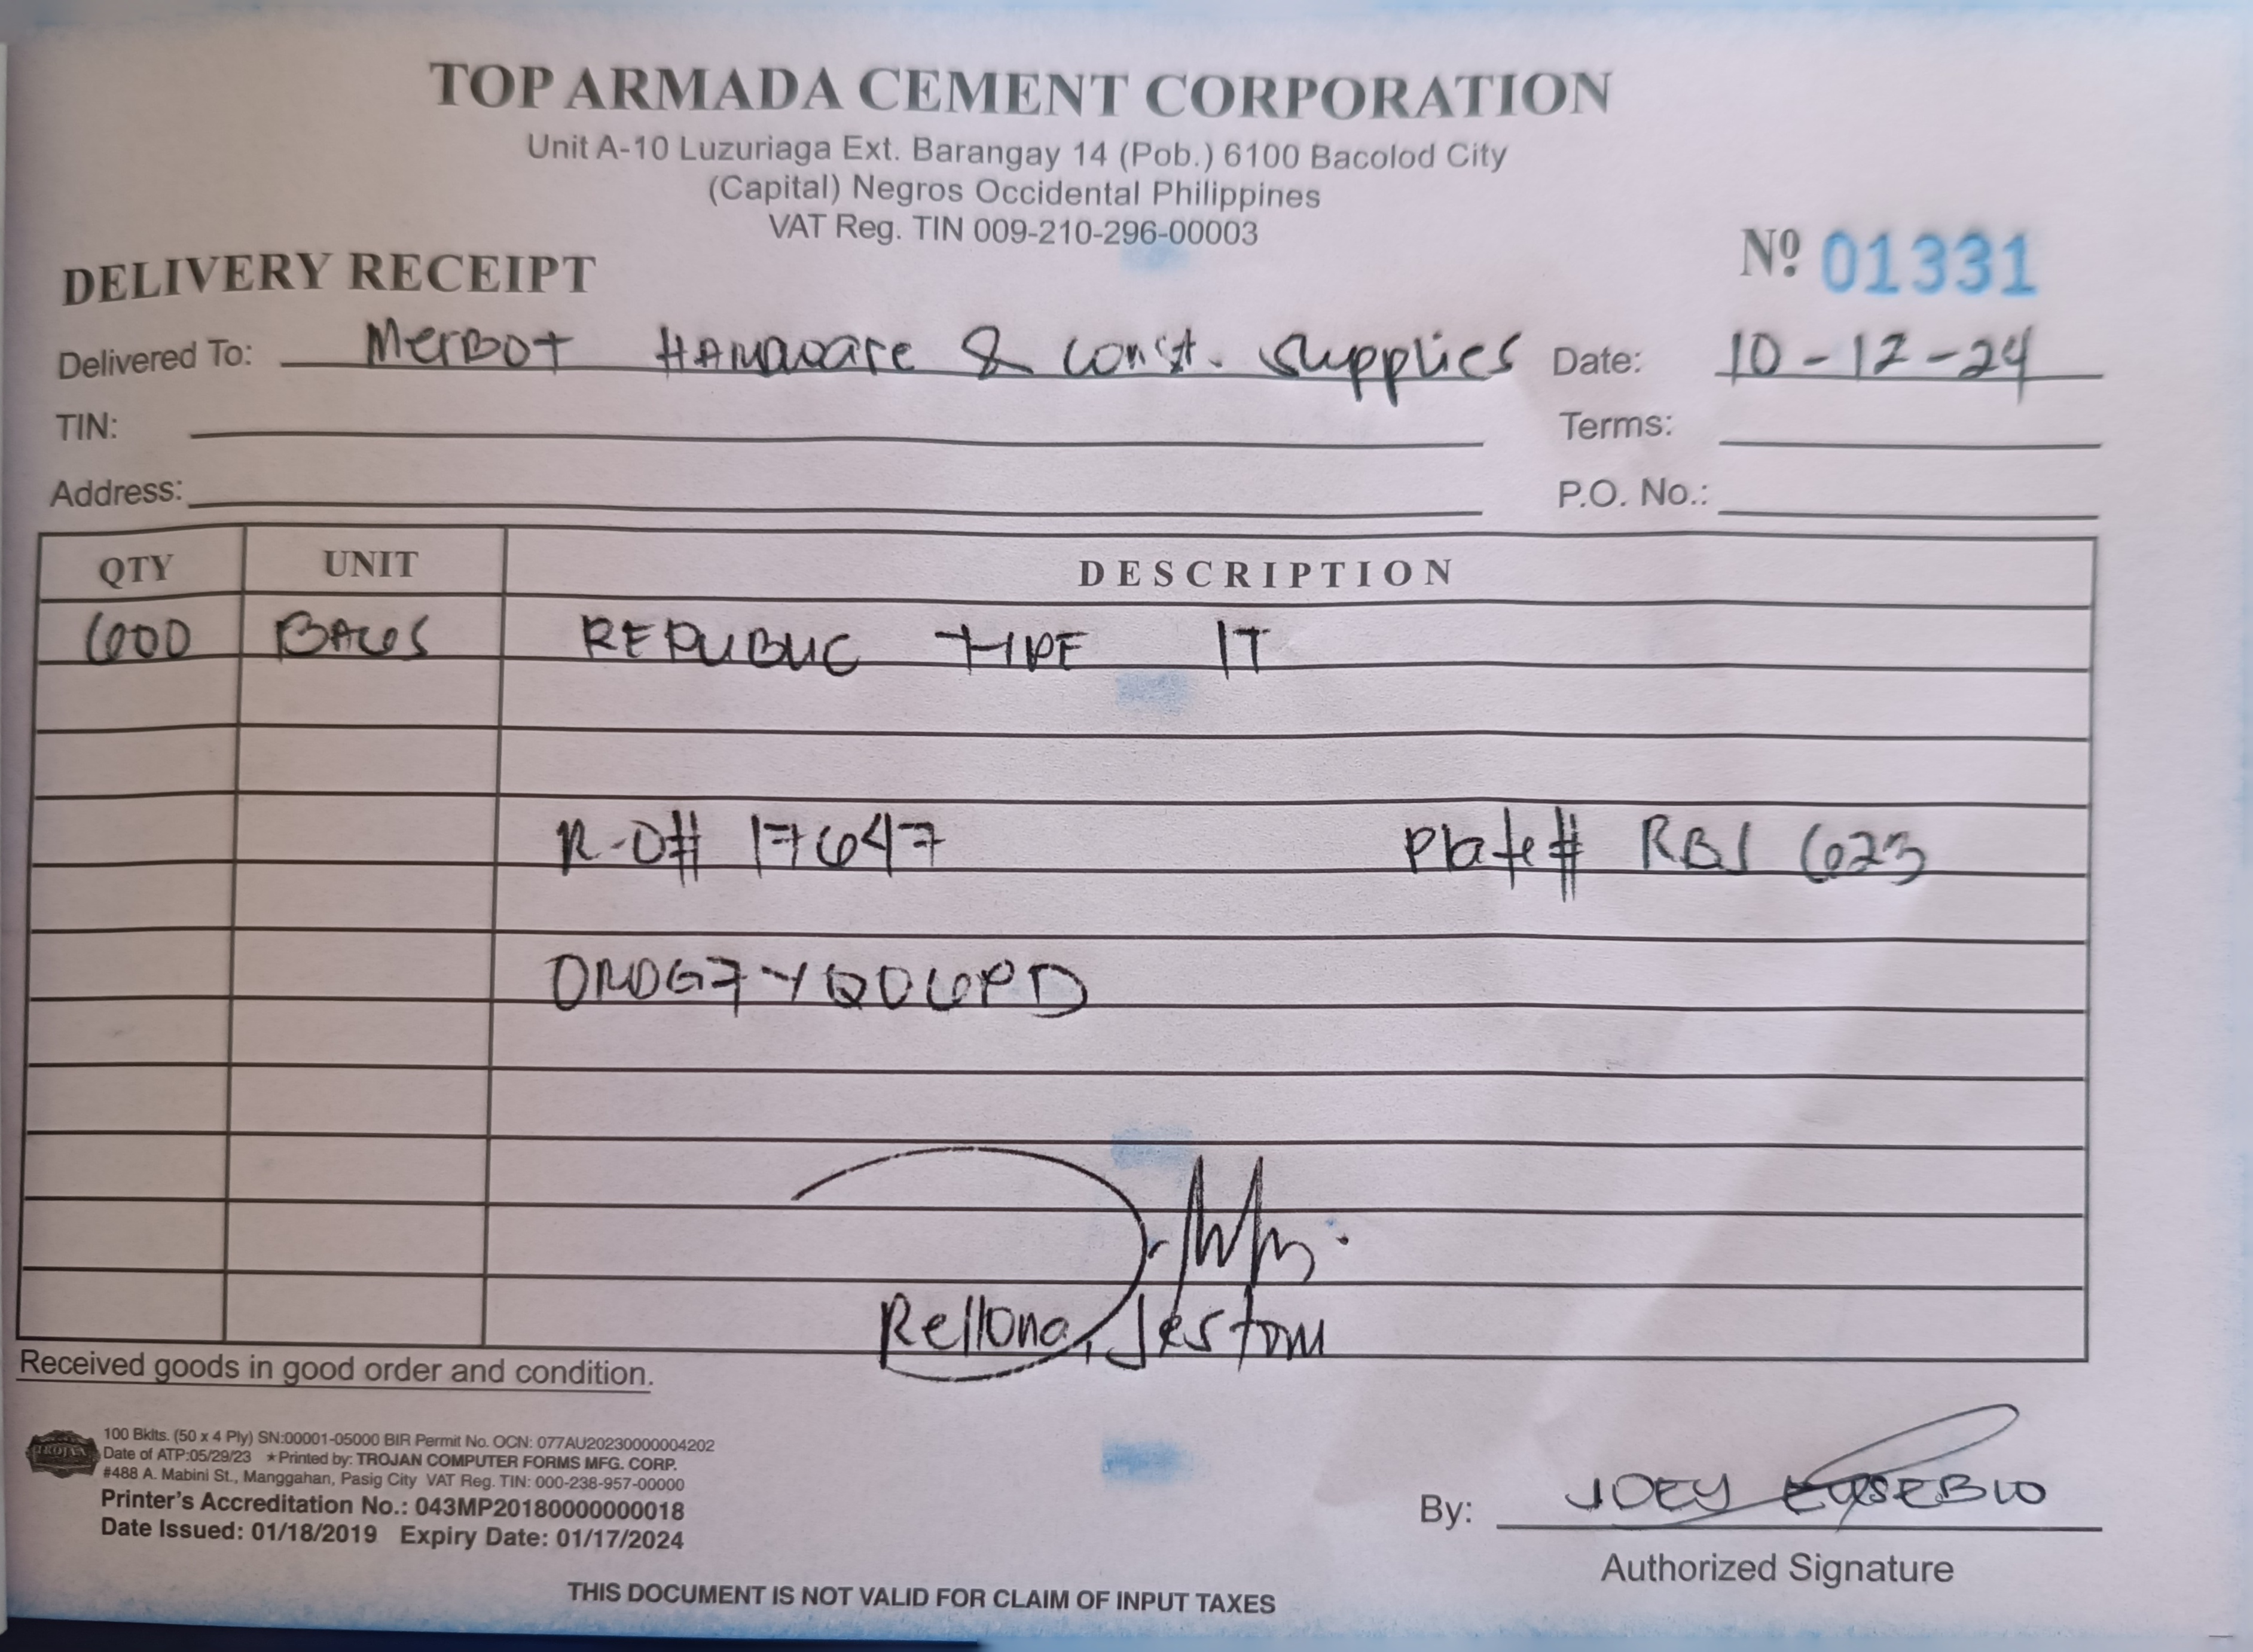 TOP ARMADA CEMENT CORPORATION
Unit A-10 Luzuriaga Ext. Barangay 14 (Pob.) 6100 Bacolod City
(Capital) Negros Occidental Philippines
VAT Reg. TIN 009-210-296-00003
DELIVERY RECEIPT
Nº 01331
Delivered To: Merbot Hardware & Const. Supplies Date: 10-12-24
TIN: Terms:
Address: P.O. No.:
QTY UNIT DESCRIPTION
600 BAGS REPUBLIC TYPE 1T
R-O# 17647 Plate# RBJ 623
Rellona, Jestom
Received goods in good order and condition.
TROJAN
100 Bklts. (50 x 4 Ply) SN:00001-05000 BIR Permit No. OCN: 077AU20230000004202
Date of ATP:05/29/23 ★Printed by: TROJAN COMPUTER FORMS MFG. CORP.
#488 A. Mabini St., Manggahan, Pasig City VAT Reg. TIN: 000-238-957-00000
Printer's Accreditation No.: 043MP20180000000018
Date Issued: 01/18/2019 Expiry Date: 01/17/2024
By: JOEY EUSEBIO
Authorized Signature
THIS DOCUMENT IS NOT VALID FOR CLAIM OF INPUT TAXES